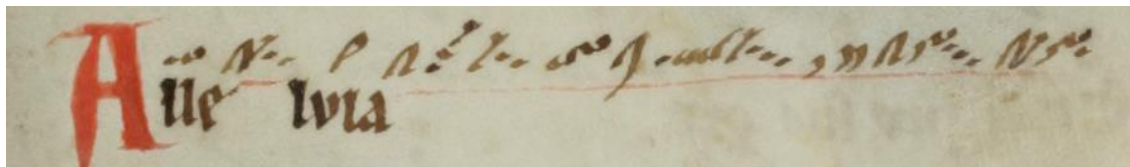 Alle lvia